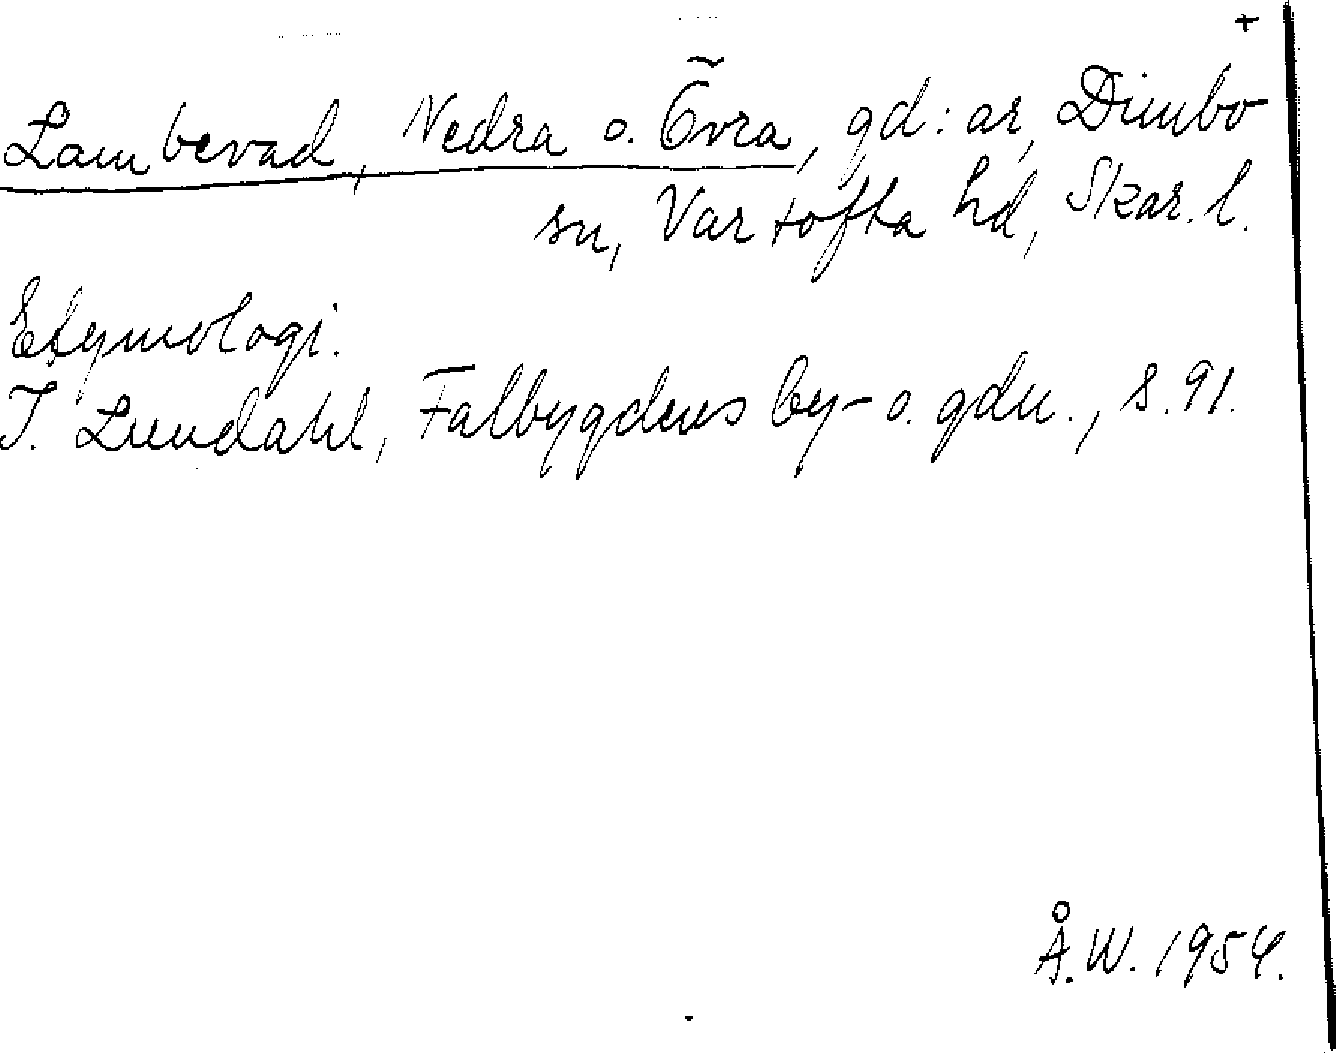 +
Lambevad, Nedra o. Övra, gd:ar, Dimbo
sn, Vartofta hd, Skar. l.
Etymologi.
I. Lundahl, Falbygdens by- o. gdn., s. 91.
Å.W. 1954.